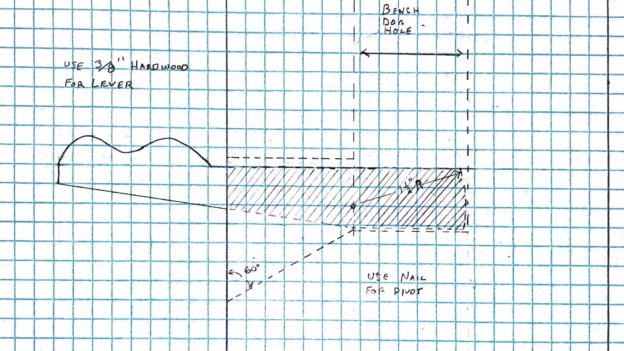 BENCH
DOG
HOLE
USE 3/8" HARDWOOD
FOR LEVER
1½" R
60°
USE NAIL
FOR PIVOT